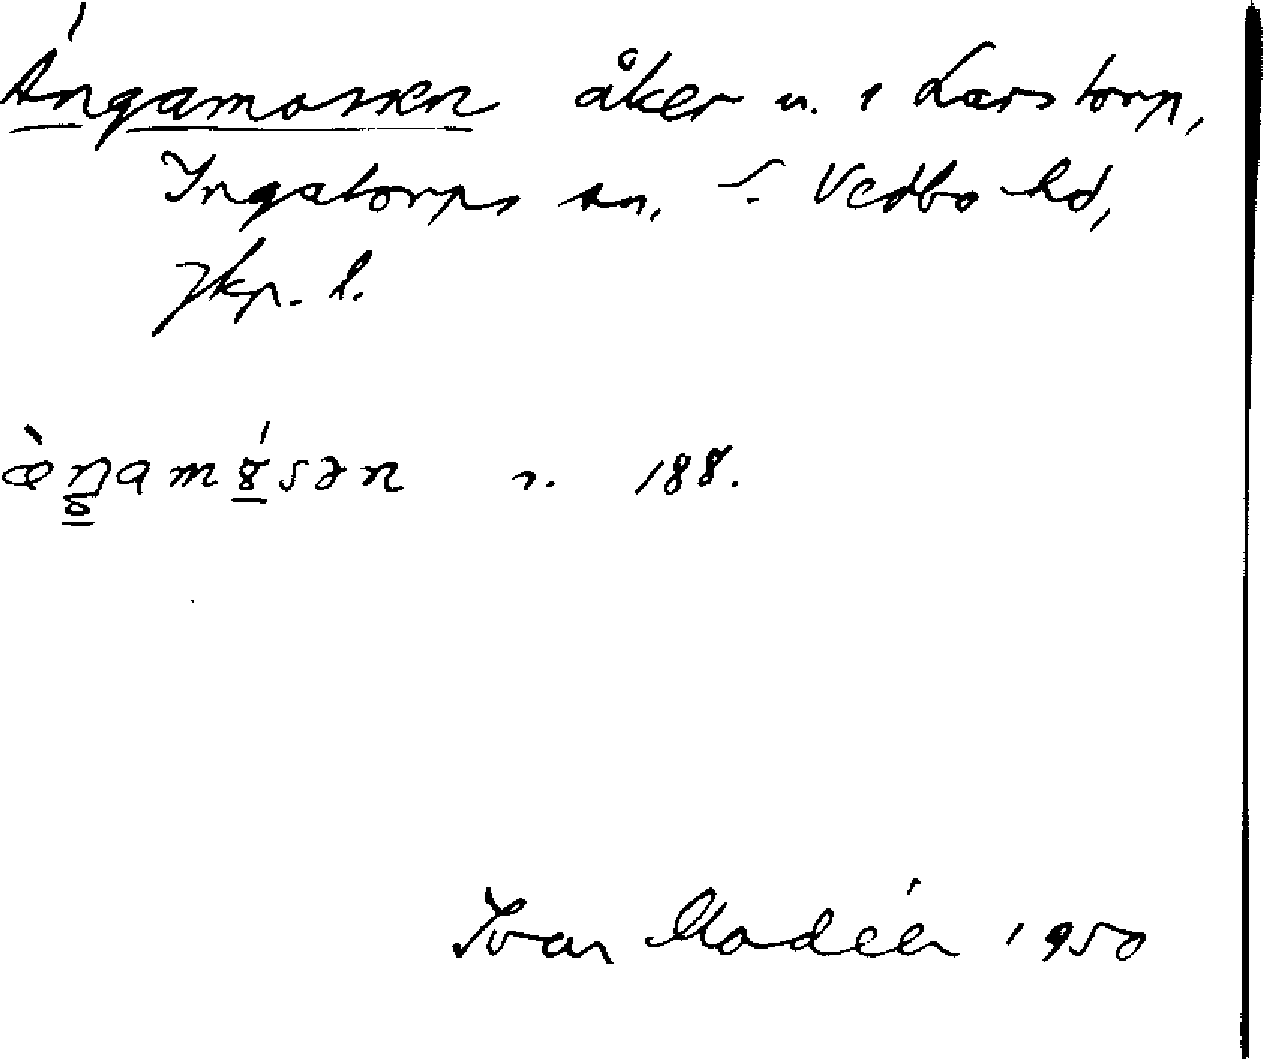 Ängamossen åker u. 1 Larstorp,
Ingatorps sn, S. Vedbo hd,
Jkp. l.
188.
Ivar Modéer 1950